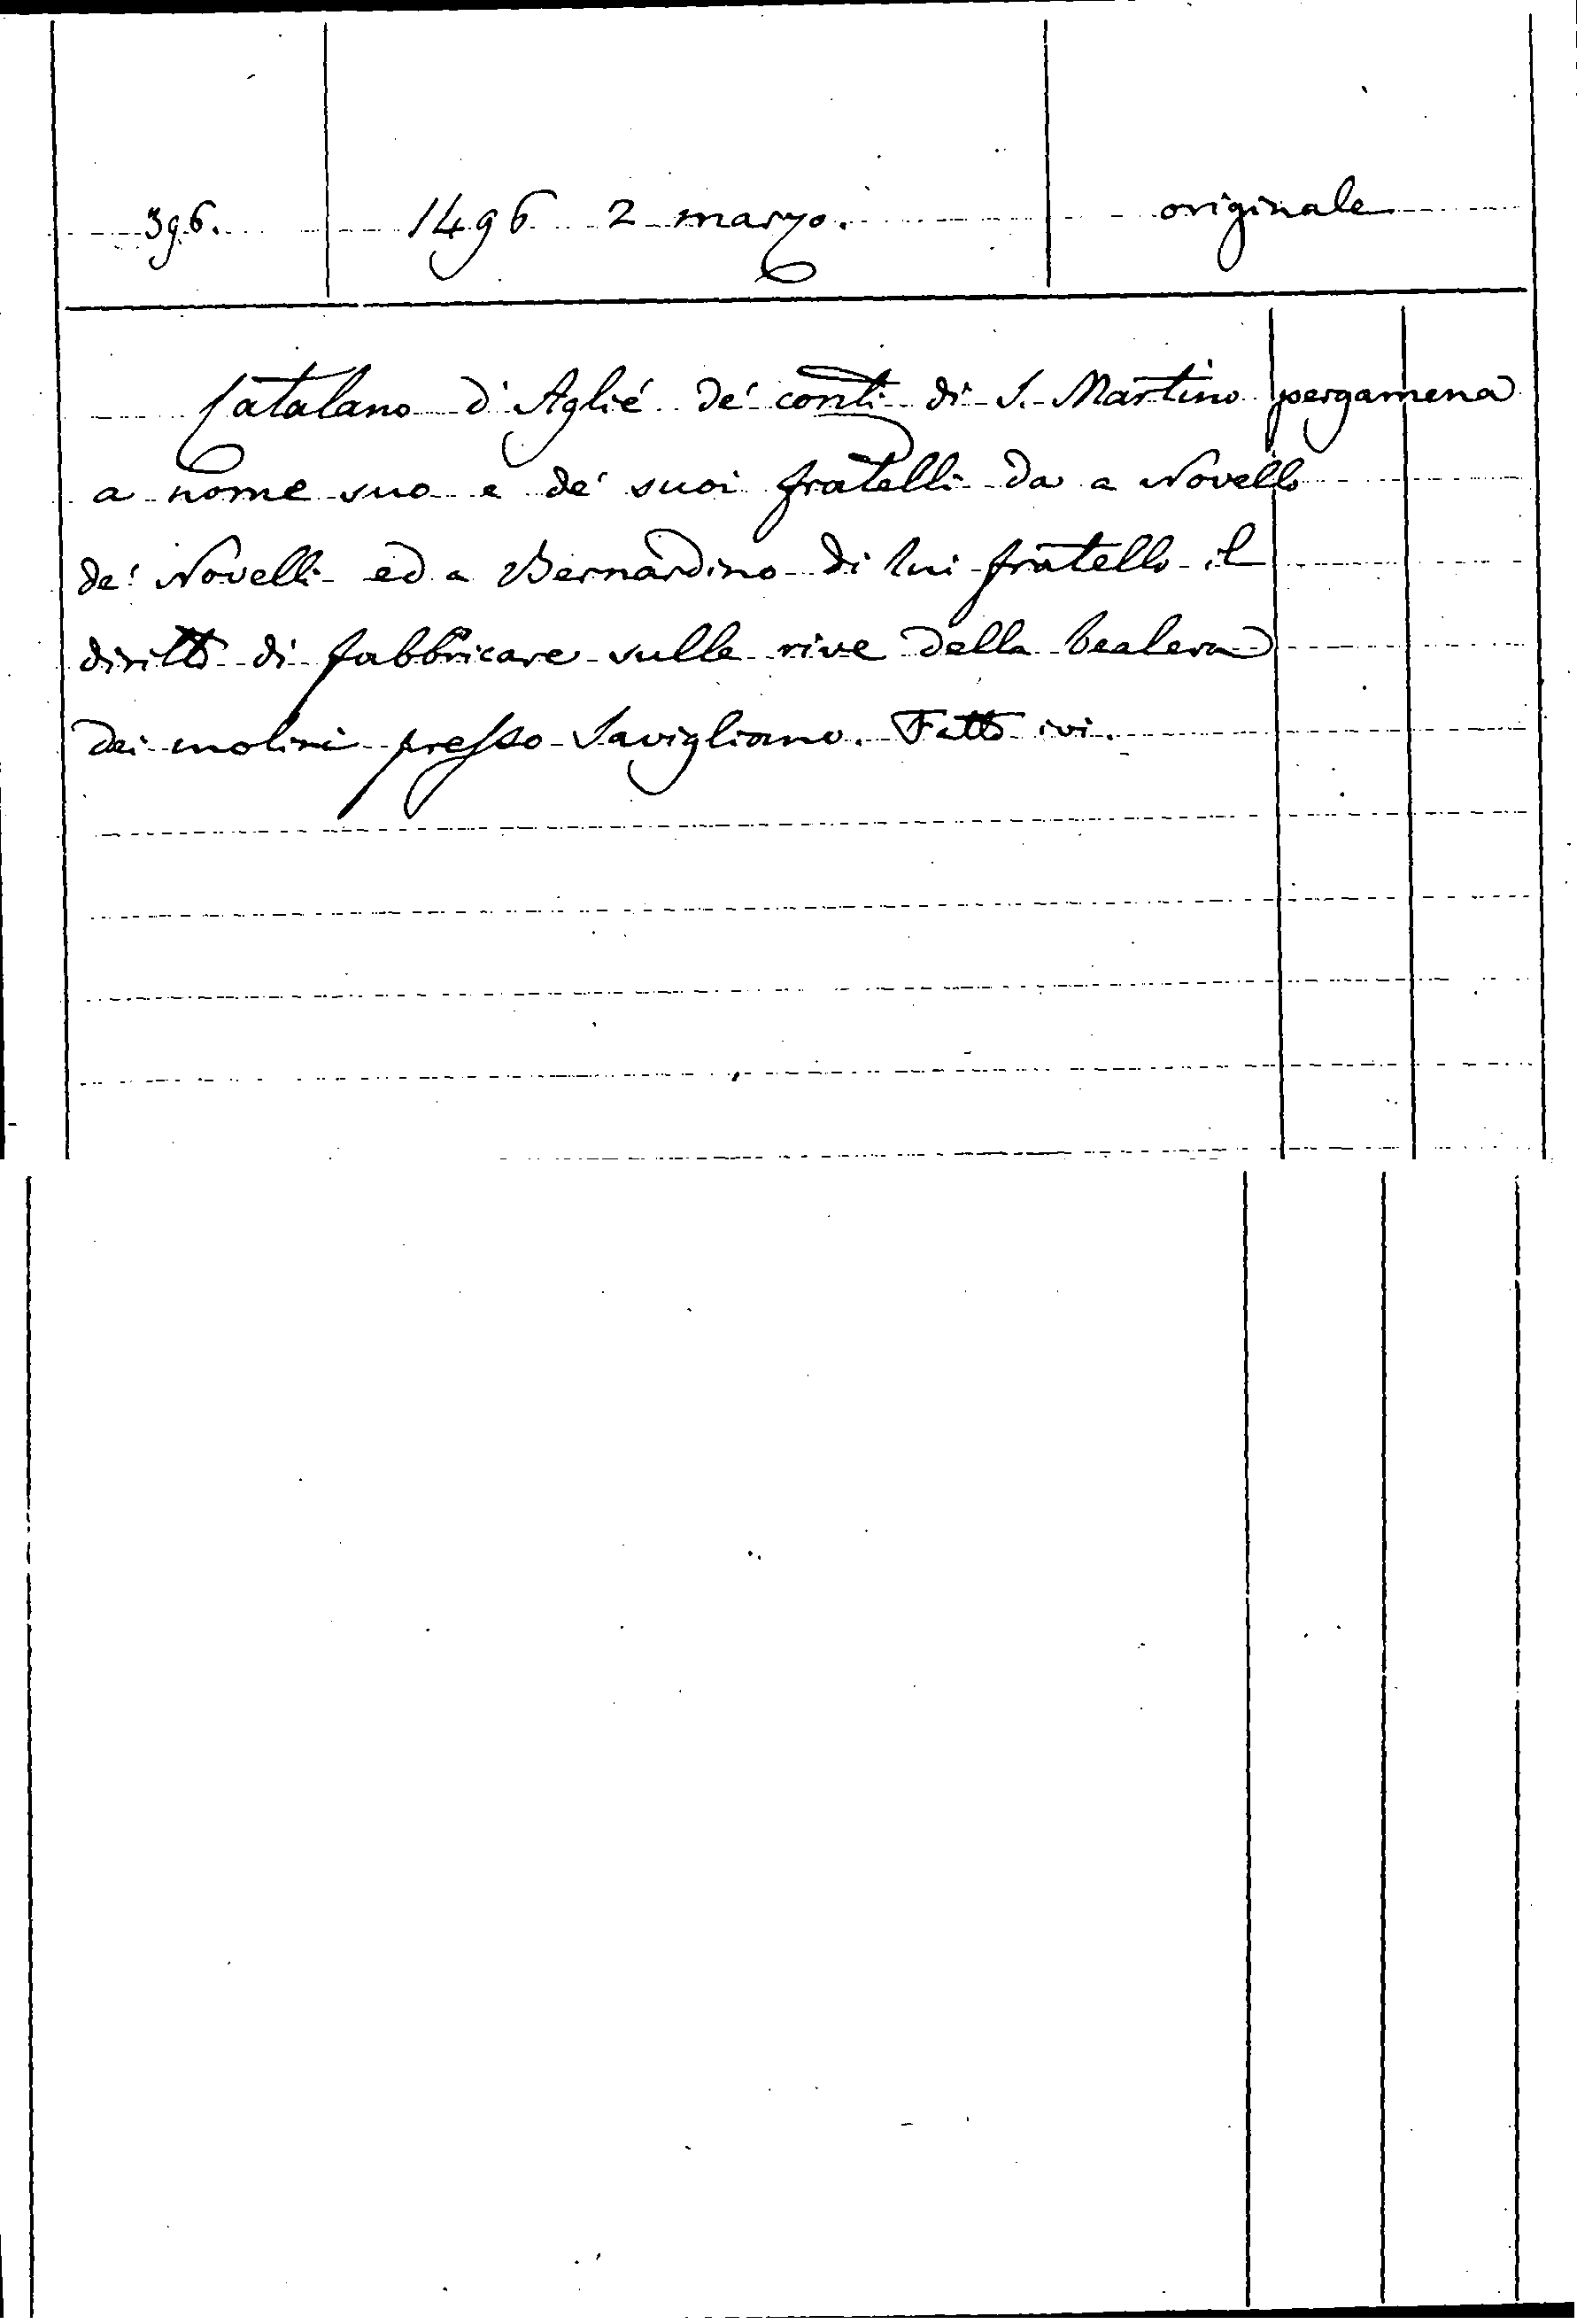 396. 1496 2 marzo. originale
Catalano d'Aglié de' conti di S. Martino pergamena
a nome suo e de' suoi fratelli da a Novello
de' Novelli ed a Bernardino di lui fratello il
diritto di fabbricare sulle rive della bealera
dei molini presso Savigliano. Fatto ivi.